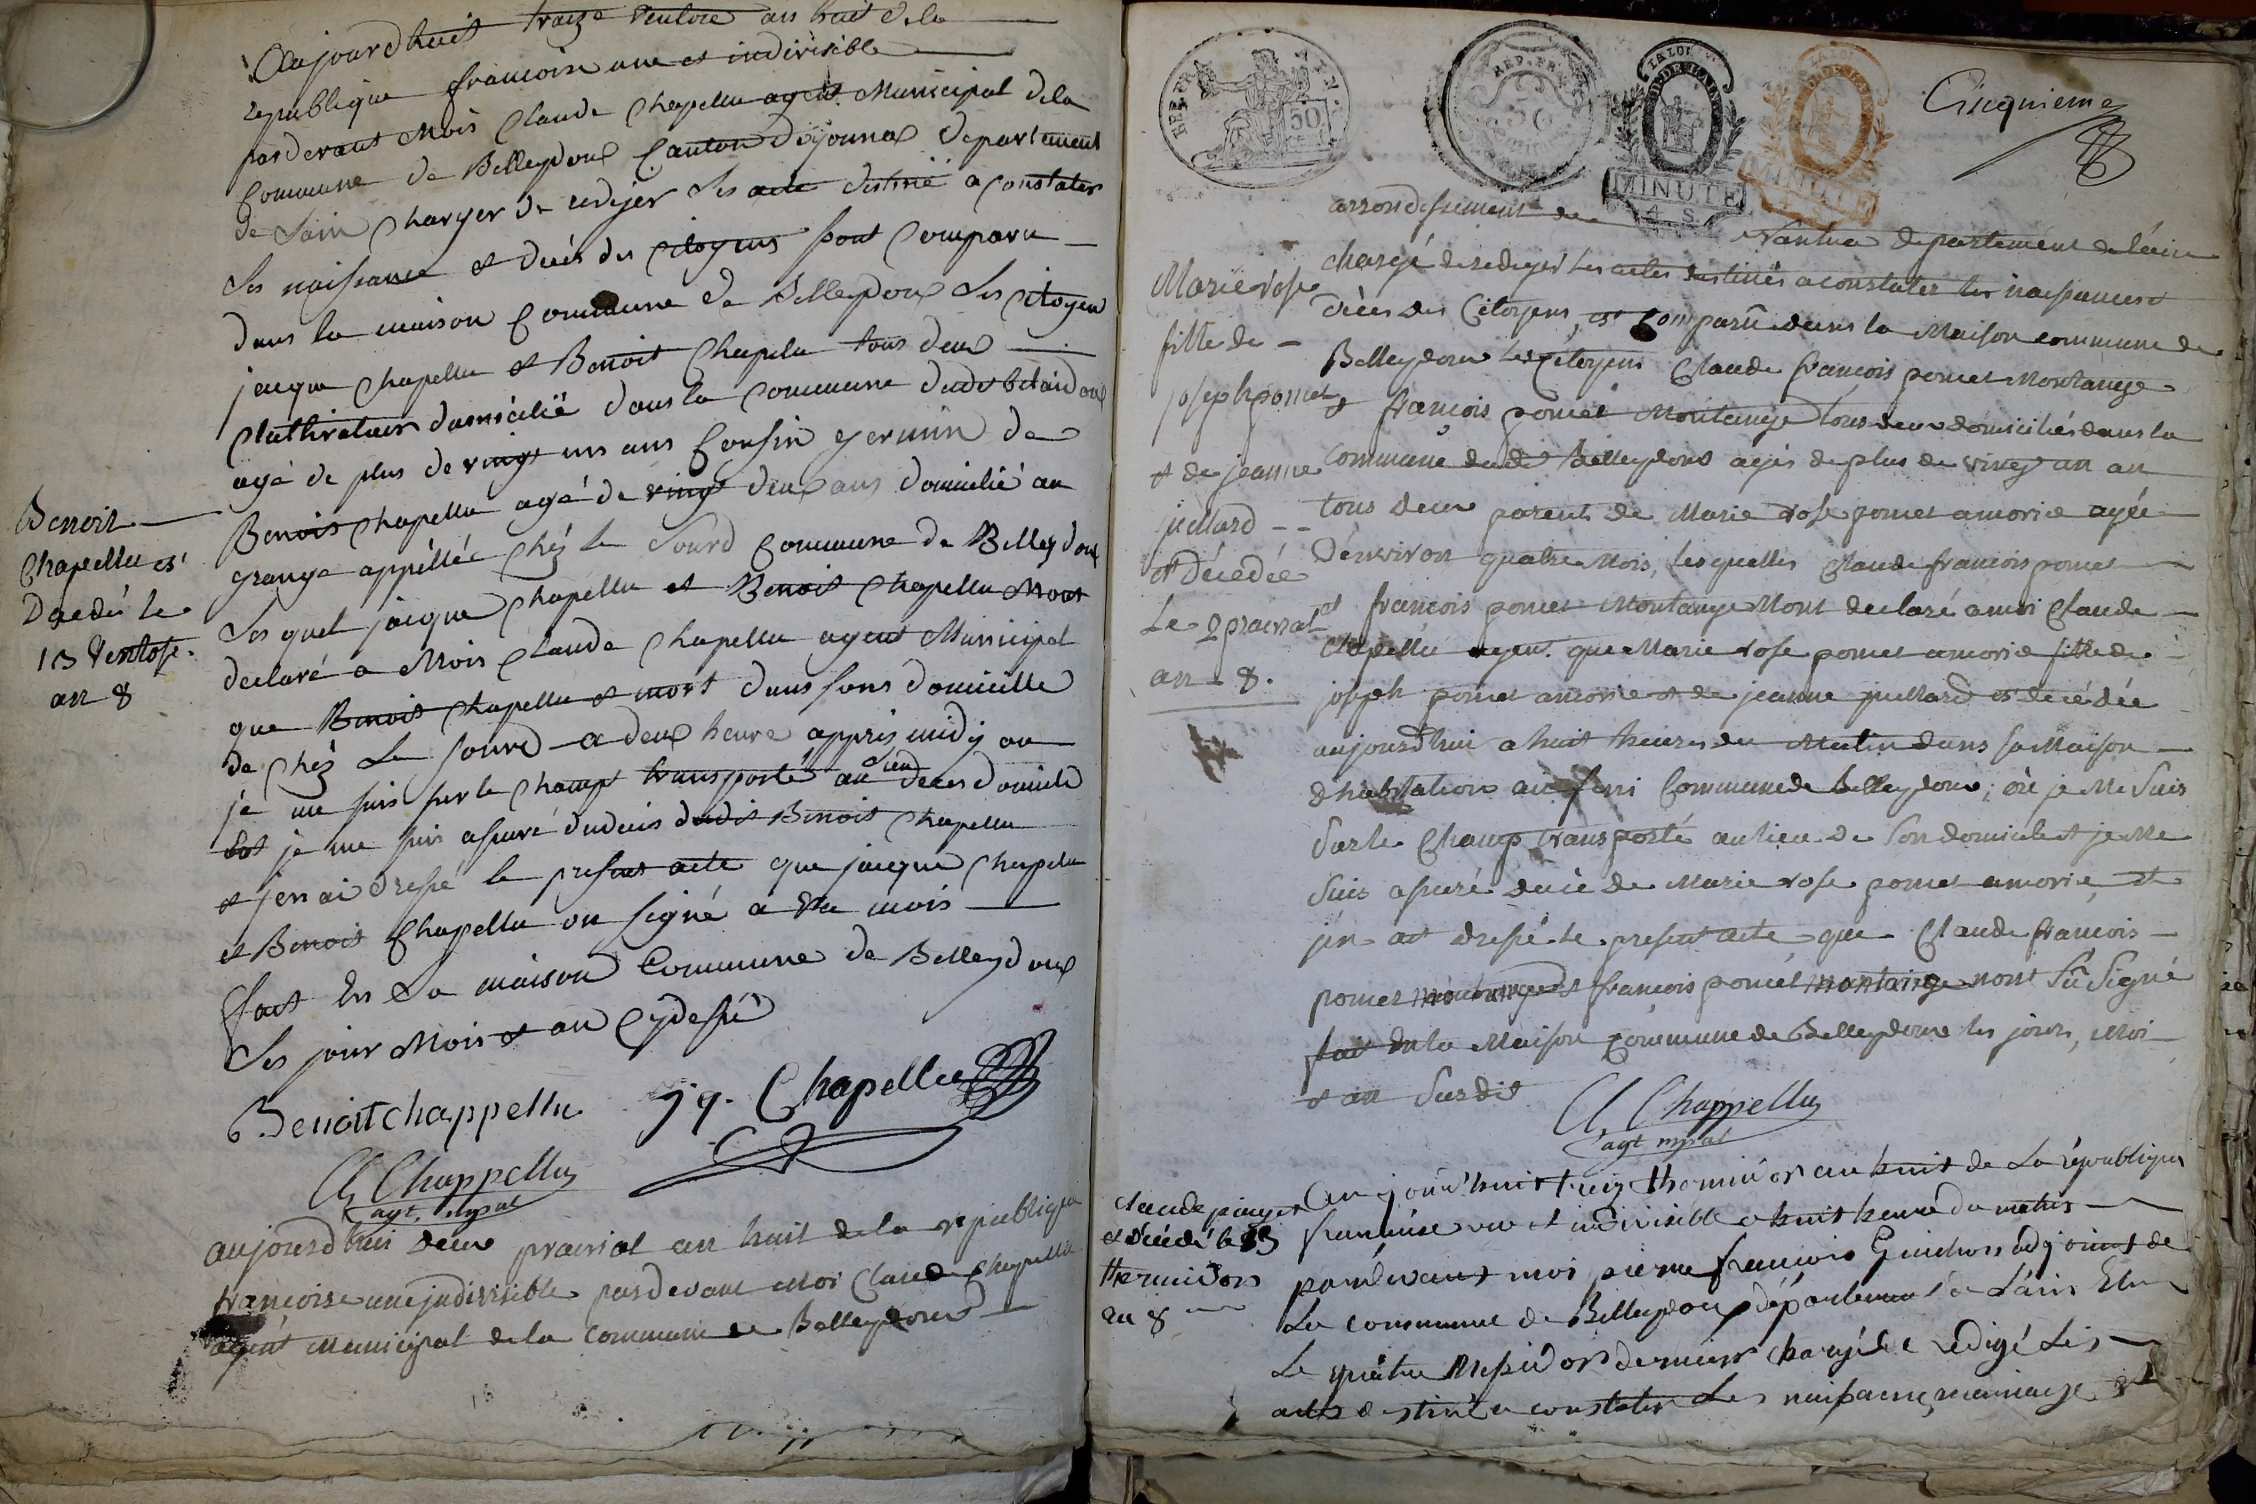 Aujourdhuit traize ventose an huit de la
republique francoise une et indivisible
pardevant Mois Claude Chapellu agent Municipal dela
Commune de Belleydoux Canton doyonnax departement
de Lain Charger de redijer les acte destiné a Constater
Les naissance et decés des citoyens sont Comparu
dans la maison Commune de Belleydoux Les Citoyen
jacque Chapellu et Benoit Chapelu tous deux
Cultivateur domicilié dans la Commune dudit
agé de plus de vingt uns ans Cousin germin de
Benois Chapellu agé de vingt deux ans domicilié au
grange appéllée Chéz le Sourd Commune de Belleydoux
Les quel jacque Chapellu et Benoit Chapellu Mont
declaré a Mois Claude Chapellu agent Municipal
que Benoit Chapellu et mort dans sons domicille
de Chéz Le sourd a deux heure apprés midy ou
je me suis sur le Champt transporté au lieu
je me suis assuré dudeces dudit Benoit Chapellu
et jen ai dressé le present acte que jacque Chapelu
et Benoit Chapellu on signé a vec mois
fait En La maison Commune de Belleydoux
Les jour Mois et an Cydessé
Benoit chappellu Jq. Chapellu
Cl Chappellu
agt. mpal
Benoit
Chapellu et
Decedé le
13 Ventose
an 8
aujourdhui deux prairial an huit de la republique
francoise une indivisible pardevant Moi Claude Chapellu
agent Municipal de la Commune de Belleydoux
REP. FRA. 50
REP. FRA.
LA LOI
MINUTE
4 S
MINUTE
Cinquieme
arrondissement de Nantua departement de lain
chargé de rediger les actes destinés a constater les naissances et
décès des Citoyens, est Comparû dans la Maison commune de
Belleydoux les Citoyens Claude françois poncet Montange
et françois poncet Montange tous deux domiciliés dans la
Commune dudit Belleydoux agés de plus de vingt un an
tous deux parents de Marie rose poncet amorie agée
d'environ quatre Mois, lesquelles Claude francois poncet
et françois poncet Montange Mont declaré a moi Claude
Chapellu agent. que Marie rose poncet amorie fille de
joseph poncet amorie et de jeanne juillard est decédée
aujourd'hui a huit heures du Matin dans sa Maison
d'habitation Commune de Belleydoux, où je Me Suis
Sur le Champ transporté au lieu de Son domicile et je Me
Suis assuré decé de Marie rose poncet amorie et
j'en ait dressé le present acte que Claude françois
poncet montange et françois poncet montange nont Sû Signé
fait en la Maison Commune de Belleydoux les jours, Moi
et an Susdit
Cl Chappellu
agt mpal
Marie rose
fille de
joseph poncet
et de jeanne
juillard
et décédée
Le 2 prairial
an 8.
Au jourd'huit treiz thermidor an huit de La république
francaise une et indivisible a huit heure du matin
pardevant moi pierre francois Gindron adjoint de
La commune de Belleydoux département de L'ain Elu
Le quatre Messidor dernier chargé de redigé Les
actes destiné a constater Les naissance, mariage et
Claude pinget
et décédé le 13
thermidor
an 8